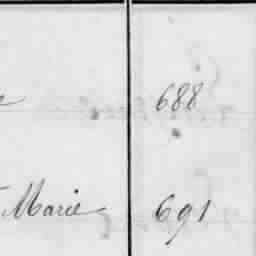 688
Marie 691